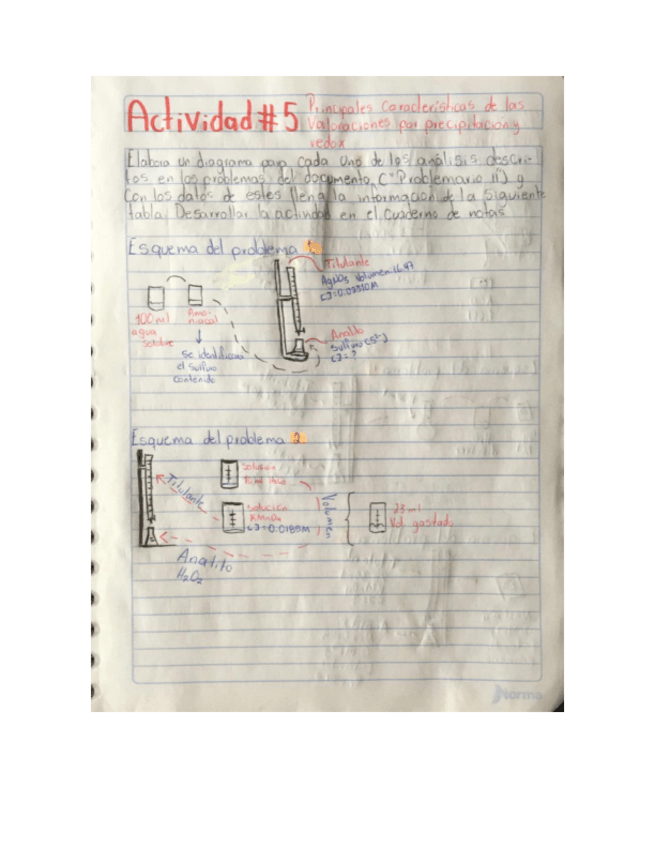 Actividad #5
Principales Características de las
Valoraciones por precipitación y
redox
Elabora un diagrama para cada uno de los análisis descri-
tos en los problemas del documento, ("Problemario II") y
con los datos de estes llena la información de la siguiente
tabla. Desarrollar la actividad en el cuaderno de notas
Esquema del problema 1
Titulante
AgNO3 Volumen 16.47
[]=0.02310M
100 ml
agua
Amo-
niacal
Analito
Sulfuro (S²⁻)
[]=?
se identificara
el sulfuro
contenido
Esquema del problema 2
Titulante
Solución
Solución
KMnO4
[]=0.0185M
Volumen
23 ml
Vol. gastado
Analito
H2O2
Norma